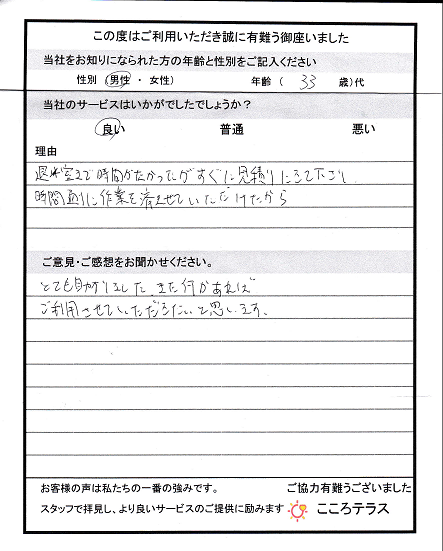 この度はご利用いただき誠に有難う御座いました
当社をお知りになられた方の年齢と性別をご記入ください
性別 (男性・女性) 年齢 ( 33 歳)代
当社のサービスはいかがでしたでしょうか?
良い 普通 悪い
理由
退去まで時間がなかったがすぐに見積りにきて下さり
時間通りに作業を済ませていただけたから
ご意見・ご感想をお聞かせください。
とても助かりました。また何かあれば
ご利用させていただきたいと思います。
お客様の声は私たちの一番の強みです。 ご協力有難うございました
スタッフで拝見し、より良いサービスのご提供に励みます こころテラス